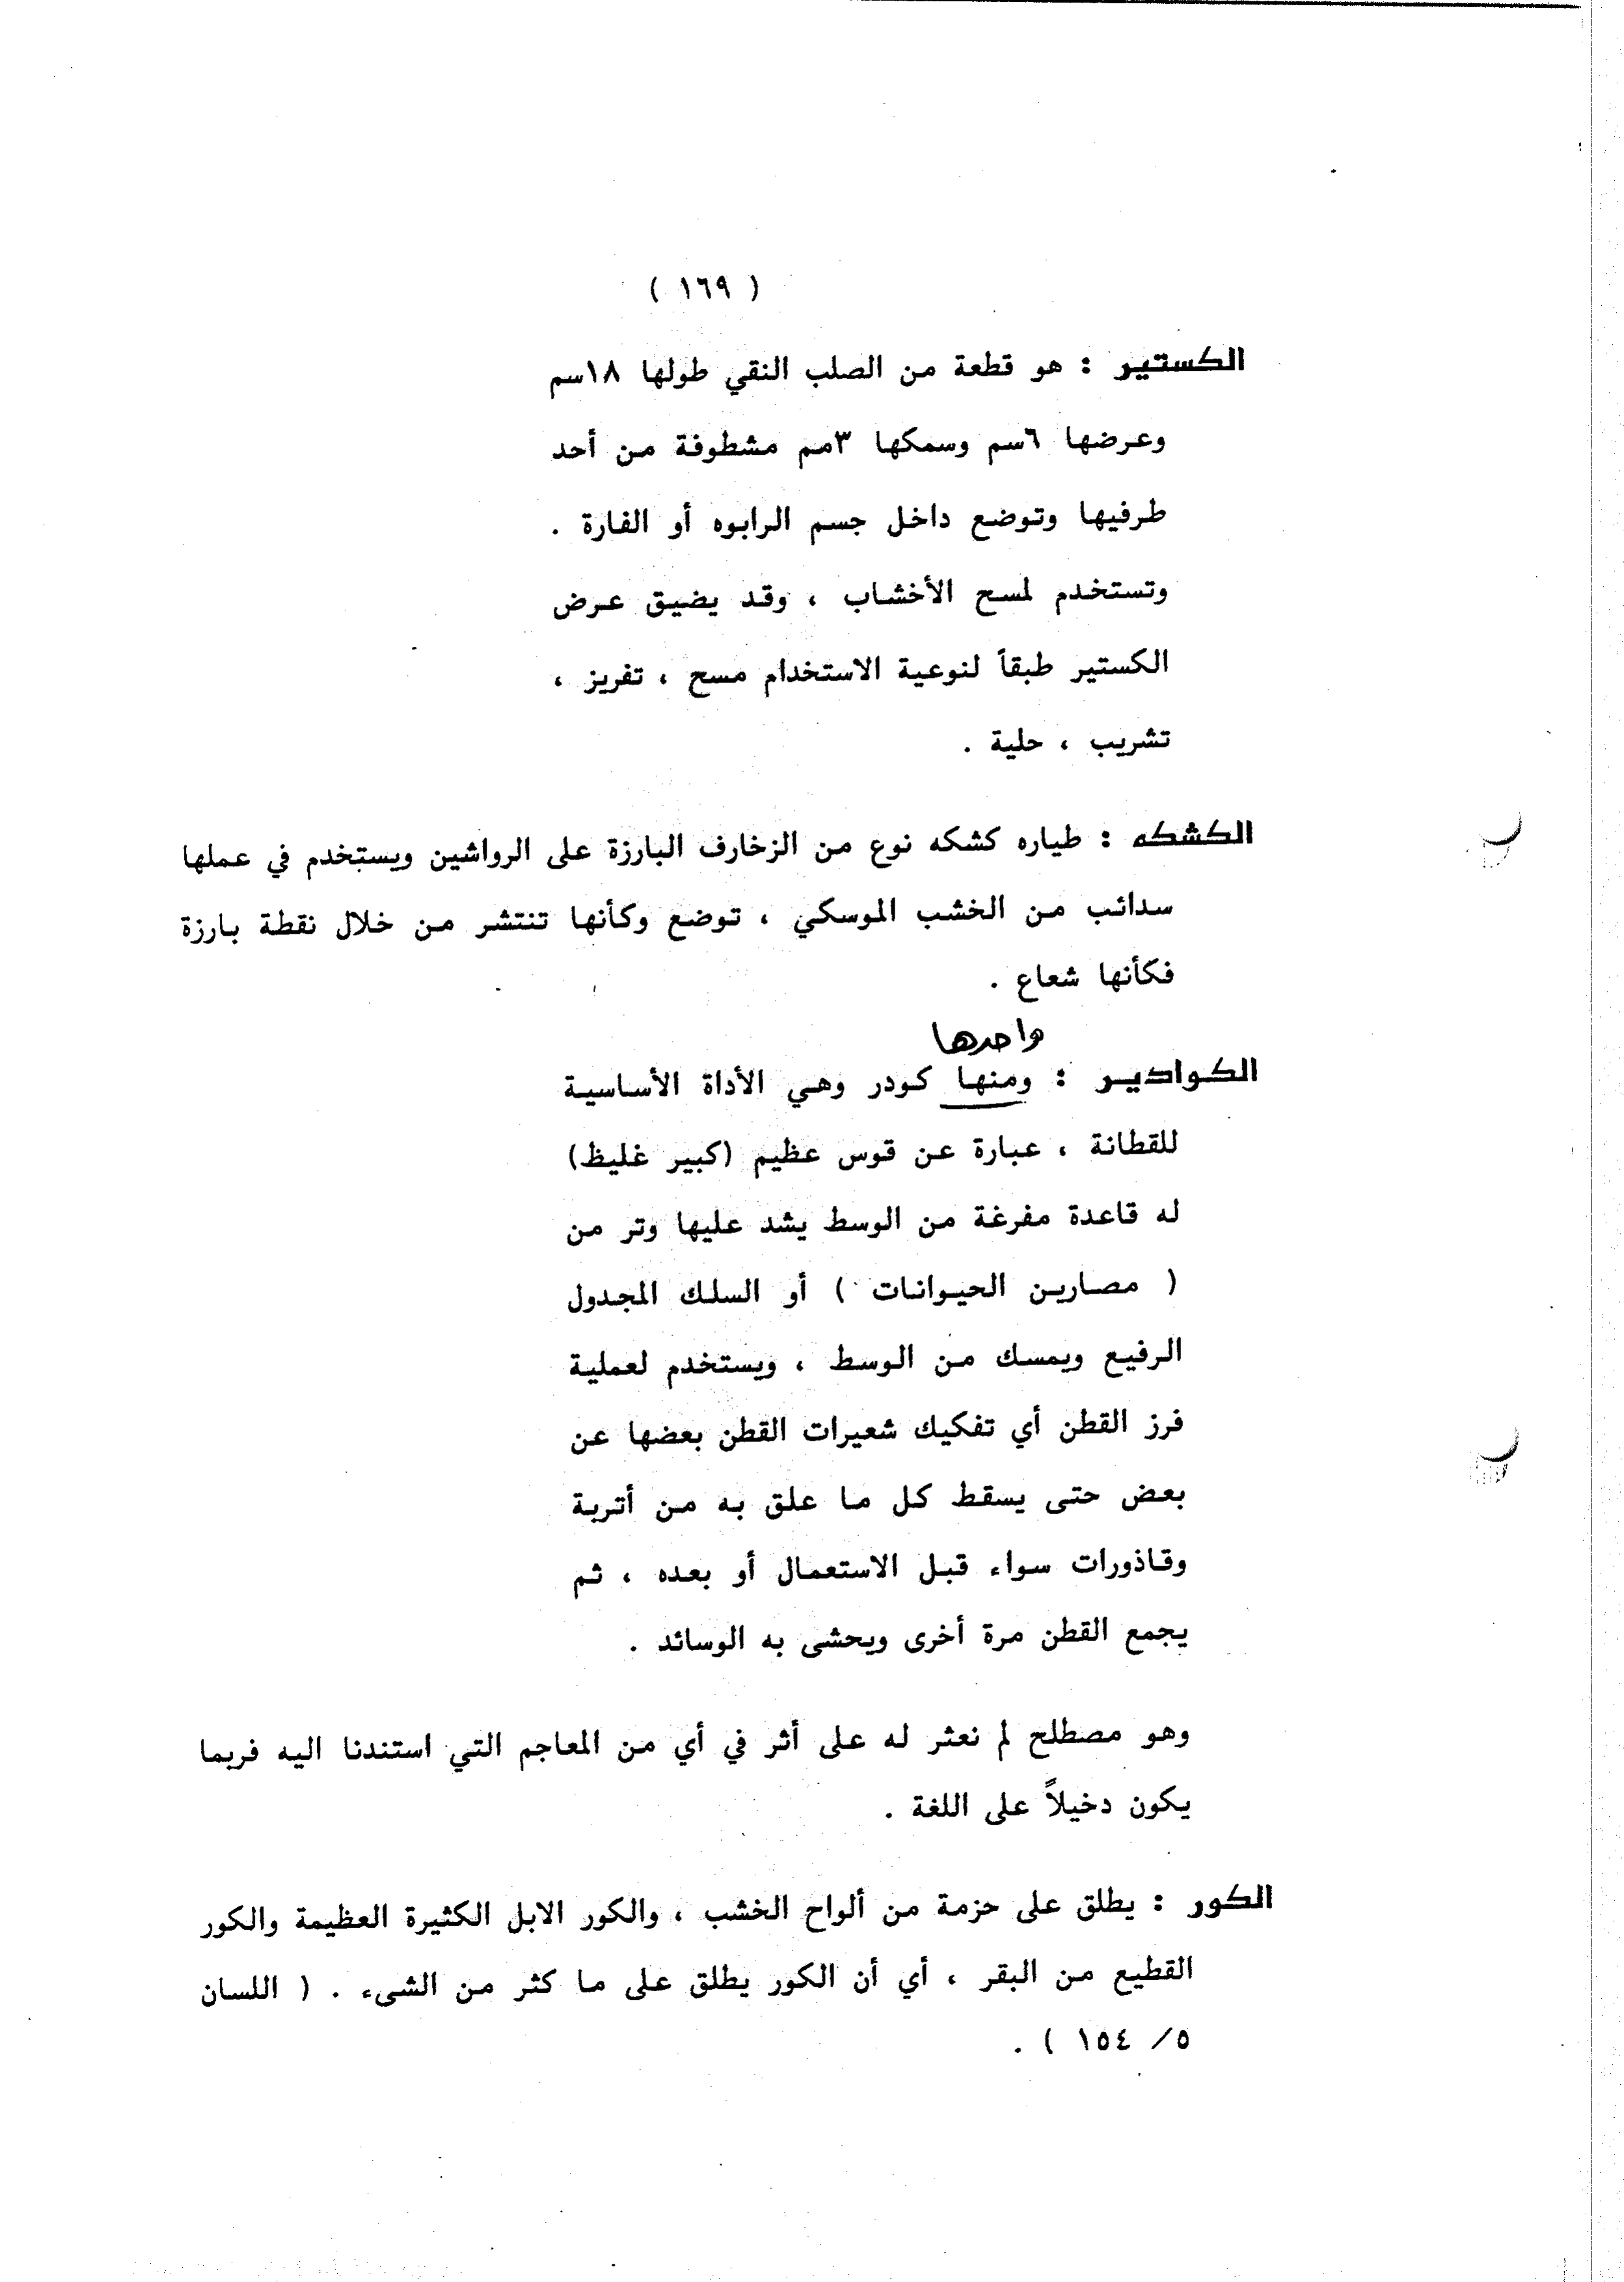 ( ١٦٩ )
الكستير : هو قطعة من الصلب النقي طولها ١٨سم
وعرضها ٦سم وسمكها ٣مم مشطوفة من أحد
طرفيها وتوضع داخل جسم الرابوه أو الفارة .
وتستخدم لمسح الأخشاب ، وقد يضيق عرض
الكستير طبقاً لنوعية الاستخدام مسح ، تفريز ،
تشريب ، حلية .
الكشكه : طياره كشكه نوع من الزخارف البارزة على الرواشين ويستخدم في عملها
سدائب من الخشب الموسكي ، توضع وكأنها تنتشر من خلال نقطة بارزة
فكأنها شعاع .
واحدها
الكوادير : ومنها كودر وهي الأداة الأساسية
للقطانة ، عبارة عن قوس عظيم (كبير غليظ)
له قاعدة مفرغة من الوسط يشد عليها وتر من
( مصارين الحيوانات ) أو السلك المجدول
الرفيع ويمسك من الوسط ، ويستخدم لعملية
فرز القطن أي تفكيك شعيرات القطن بعضها عن
بعض حتى يسقط كل ما علق به من أتربة
وقاذورات سواء قبل الاستعمال أو بعده ، ثم
يجمع القطن مرة أخرى ويحشى به الوسائد .
وهو مصطلح لم نعثر له على أثر في أي من المعاجم التي استندنا اليه فربما
يكون دخيلاً على اللغة .
الكور : يطلق على حزمة من ألواح الخشب ، والكور الابل الكثيرة العظيمة والكور
القطيع من البقر ، أي أن الكور يطلق على ما كثر من الشىء . ( اللسان
٥/ ١٥٤ ) .